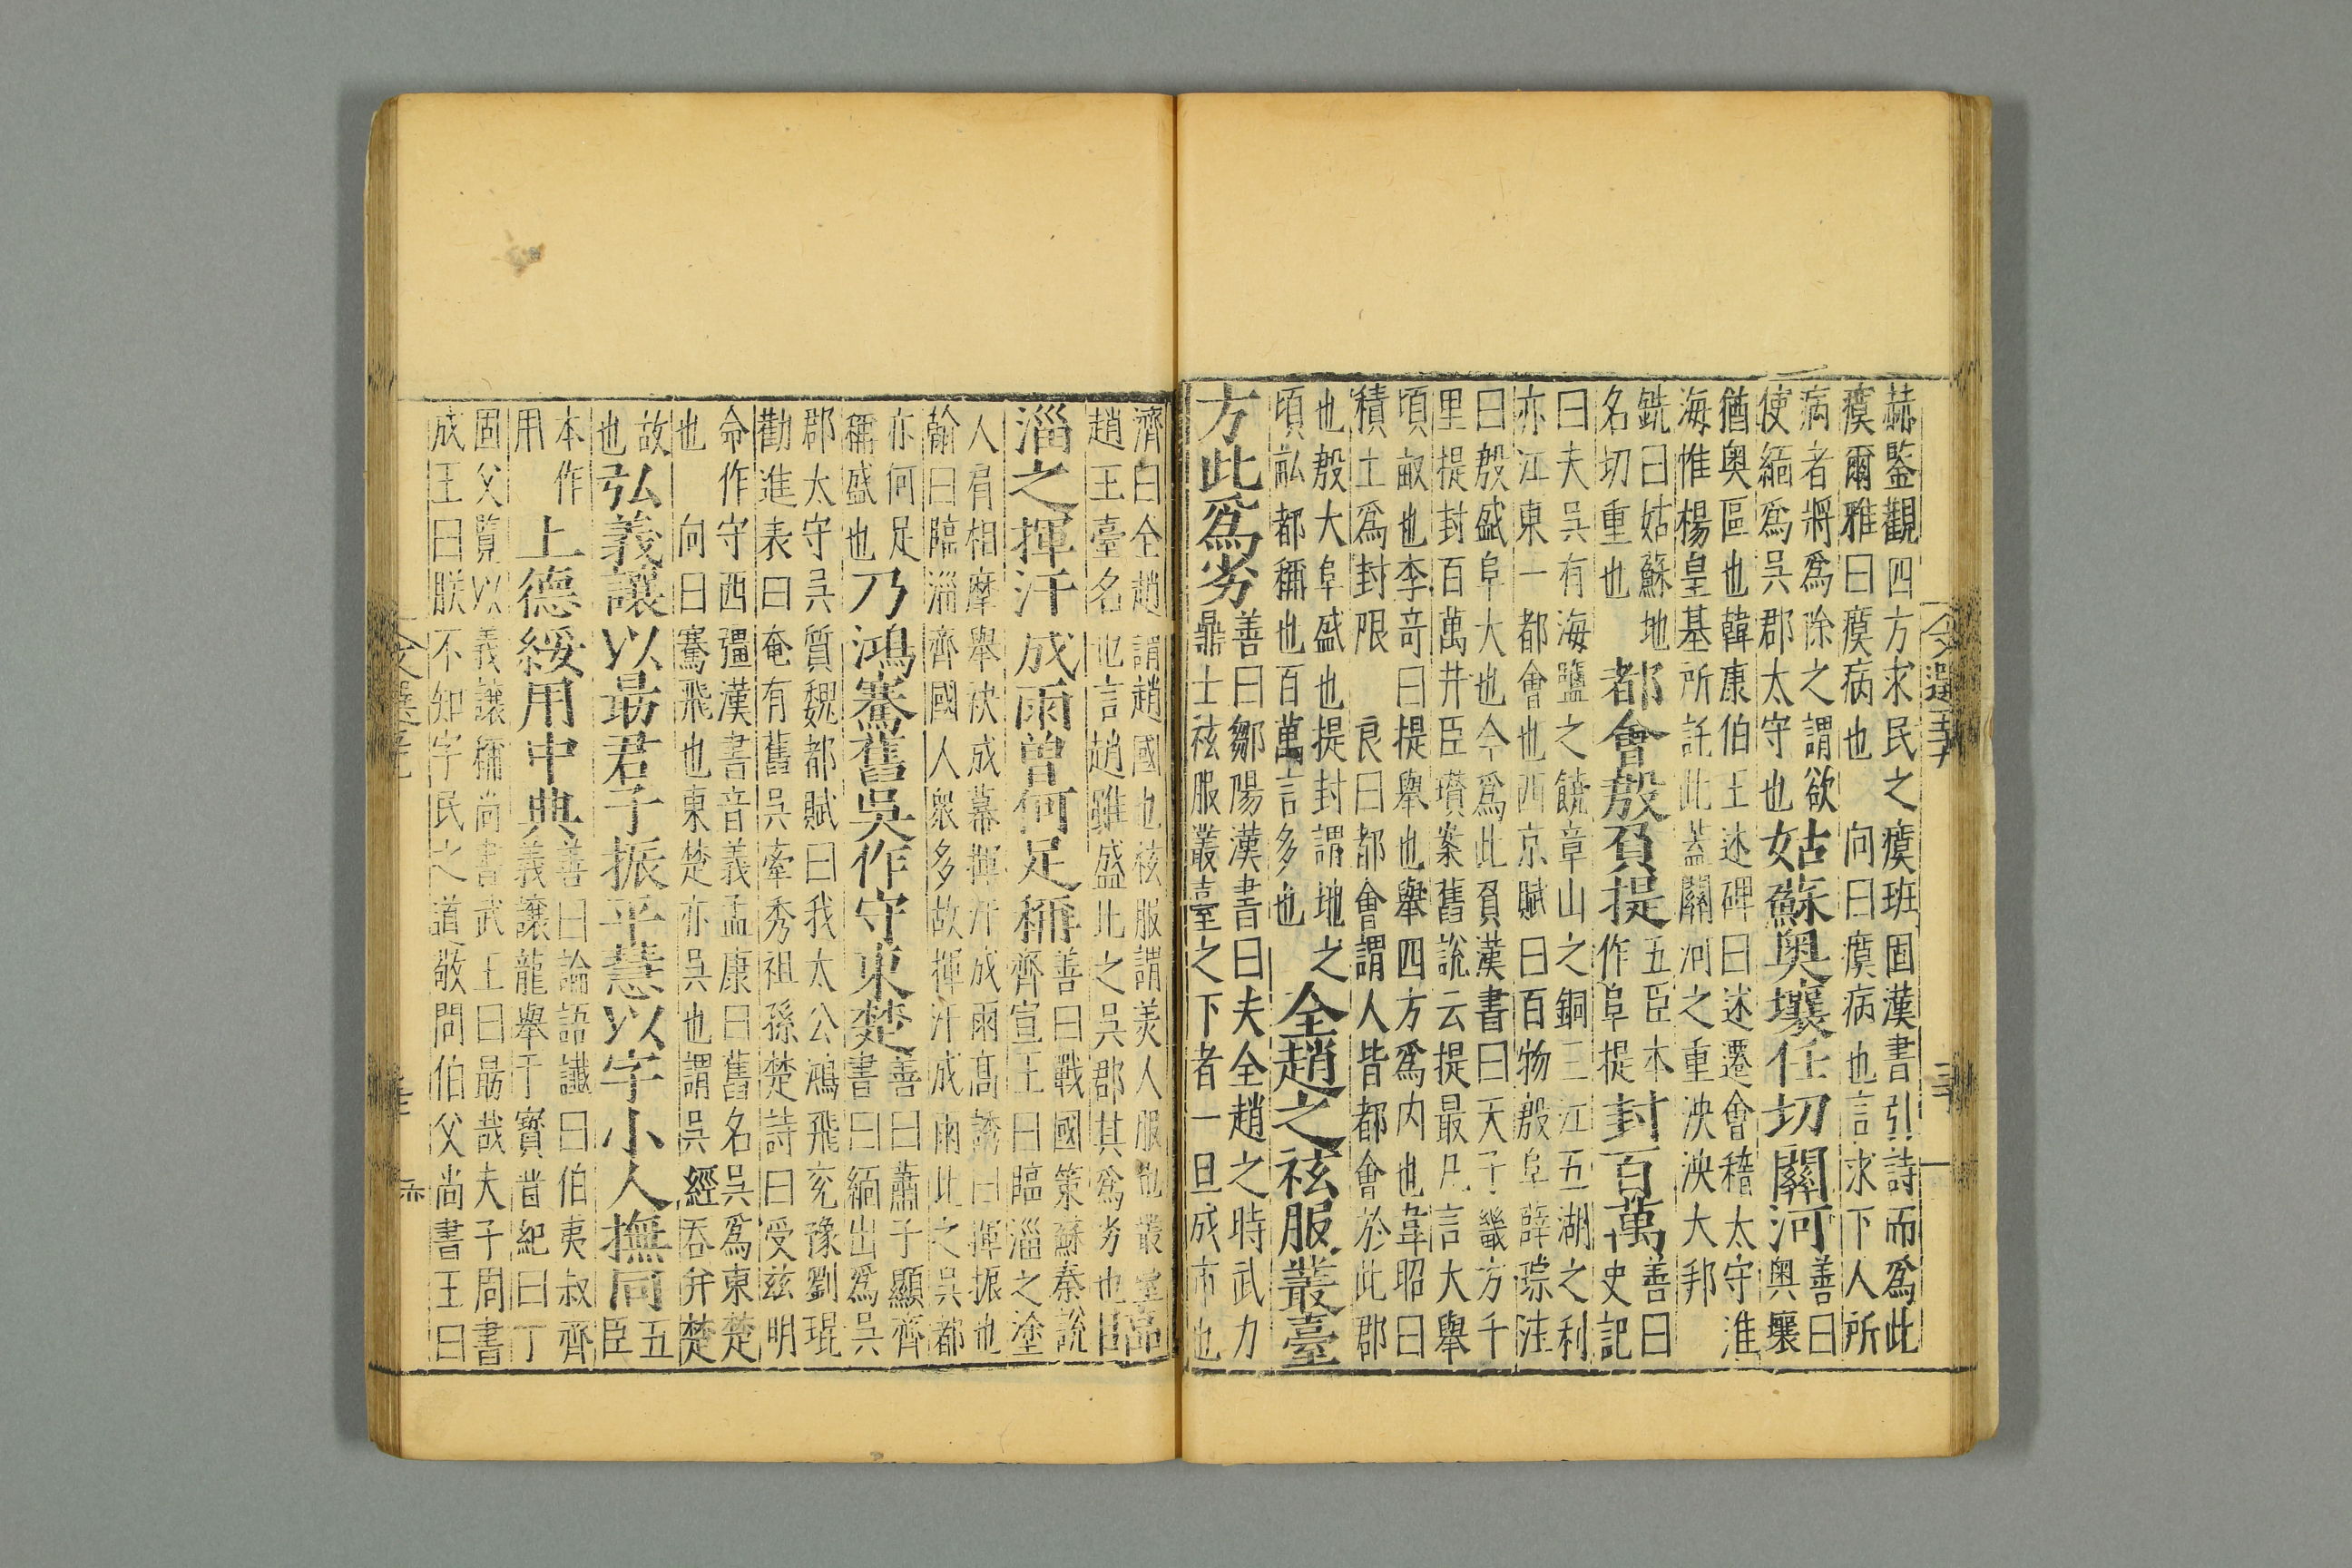 赫鑒觀四方求民之瘼班固漢書引詩而爲此
瘼爾雅曰瘼病也　向曰瘼病也言求下人所
病者將爲除之謂欲
使緬爲吳郡太守也
姑蘇奥壤任切關河
善曰
奥壤
猶奥區也韓康伯王述碑曰述遷會稽太守淮
海惟楊皇基所託此蓋關河之重泱泱大邦
銑曰姑蘇地
名切重也
都會殷負提
五臣本
作阜提
封百萬
善曰
史記
曰夫吳有海鹽之饒章山之銅三江五湖之利
亦江東一都會也西京賦曰百物殷阜薛琮注
曰殷盛阜大也今爲此負漢書曰天子畿方千
里提封百萬井臣瓚案舊說云提最凡言大舉
頃畝也李竒曰提舉也舉四方爲内也韋昭曰
積土爲封限　良曰都會謂人皆都會於此郡
也殷大阜盛也提封謂地之
頃畝都稱也百萬言多也
全趙之袨服叢臺
方此爲劣
善曰鄒陽漢書曰夫全趙之時武力
鼎士袨服叢臺之下者一旦成市也
濟曰全趙謂趙國也袨服謂美人服也叢臺高
趙王臺名也言趙雖盛此之吳郡其爲劣也臨
淄之揮汗成雨曽何足稱
善曰戰國策蘇秦說
齊宣王曰臨淄之塗
人肩相摩舉袂成幕揮汗成雨髙誘曰揮振也
翰曰臨淄齊國人衆多故揮汗成雨此之吳都
亦何足
稱盛也
乃鴻騫舊吳作守東楚
善曰蕭子顯齊
書曰緬出爲吳
郡太守吳質魏都賦曰我太公鴻飛兖豫劉琨
勸進表曰奄有舊吳牽秀祖孫楚詩曰受兹明
命作守西彊漢書音義孟康曰舊名吳爲東楚
也　向曰騫飛也東楚亦吳也謂吳經吞弁楚
故
也
弘義讓以勗君子振平慧以字小人撫同
五
臣
本作
用
上德綏用中典
善曰論語讖曰伯夷叔齊
義讓龍舉干寳晉紀曰丁
固父覽以義讓稱尚書武王曰勗哉夫子周書
成王曰朕不知字民之道敬問伯父尚書王曰